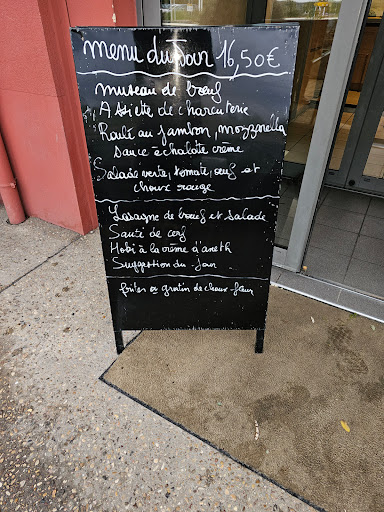 menu du Jour 16,50€
museau de bœuf
Assiette de charcuterie
Roulé au jambon, mozzarella
sauce echalote crème
Salade verte, tomate, œuf et
choux rouge
Lasagne de bœuf et salade
Sauté de cerf
Hoki à la crème d'aneth
Suggestion du Jour
frites et gratin de choux fleur